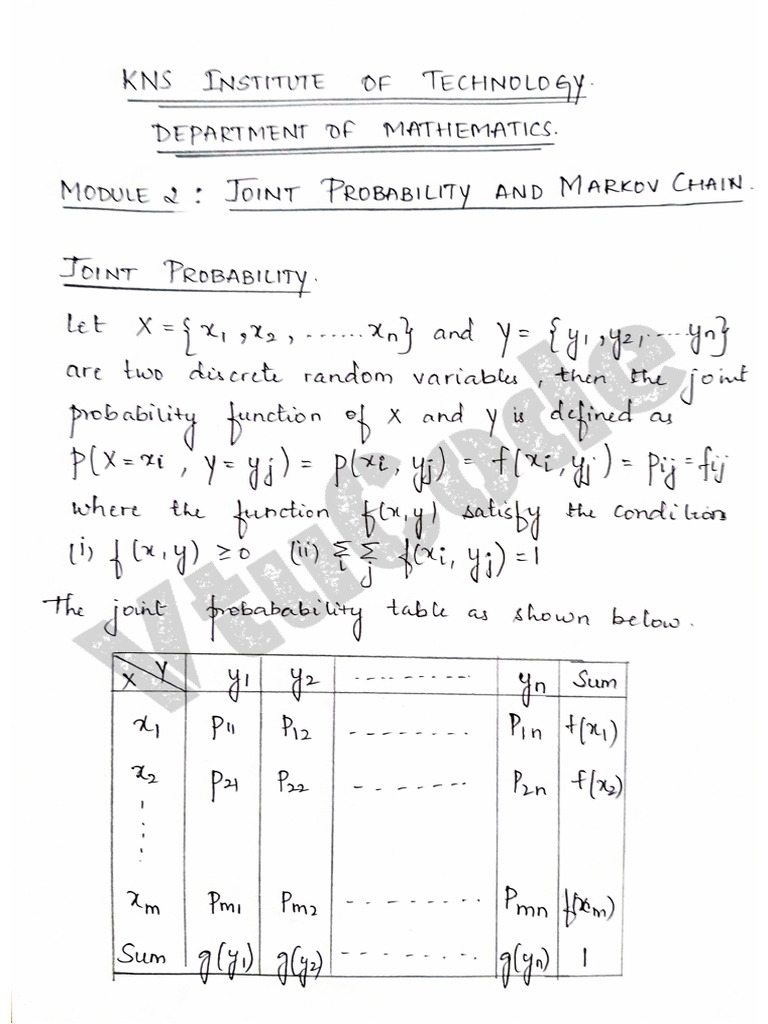 KNS INSTITUTE OF TECHNOLOGY.
DEPARTMENT OF MATHEMATICS.
MODULE 2 : JOINT PROBABILITY AND MARKOV CHAIN.
JOINT PROBABILITY.
Let X = {x₁, x₂, ...... xₙ} and Y = {y₁, y₂, .... yₙ}
are two discrete random variables, then the joint
probability function of X and Y is defined as
P(X = xi , Y = yj) = P(xi, yj) = f(xi, yj) = Pij = fij
where the function f(x,y) satisfy the conditions
(i) f(x,y) ≥ 0 (ii) Σi Σj f(xi, yj) = 1
The joint probabability table as shown below.
X Y y₁ y₂ ........... yₙ Sum
x₁ P₁₁ P₁₂ -------- P₁ₙ f(x₁)
x₂ P₂₁ P₂₂ ------- P₂ₙ f(x₂)
xₘ Pₘ₁ Pₘ₂ -------- Pₘₙ f(xₘ)
Sum g(y₁) g(y₂) -------- g(yₙ) 1
VtuCode